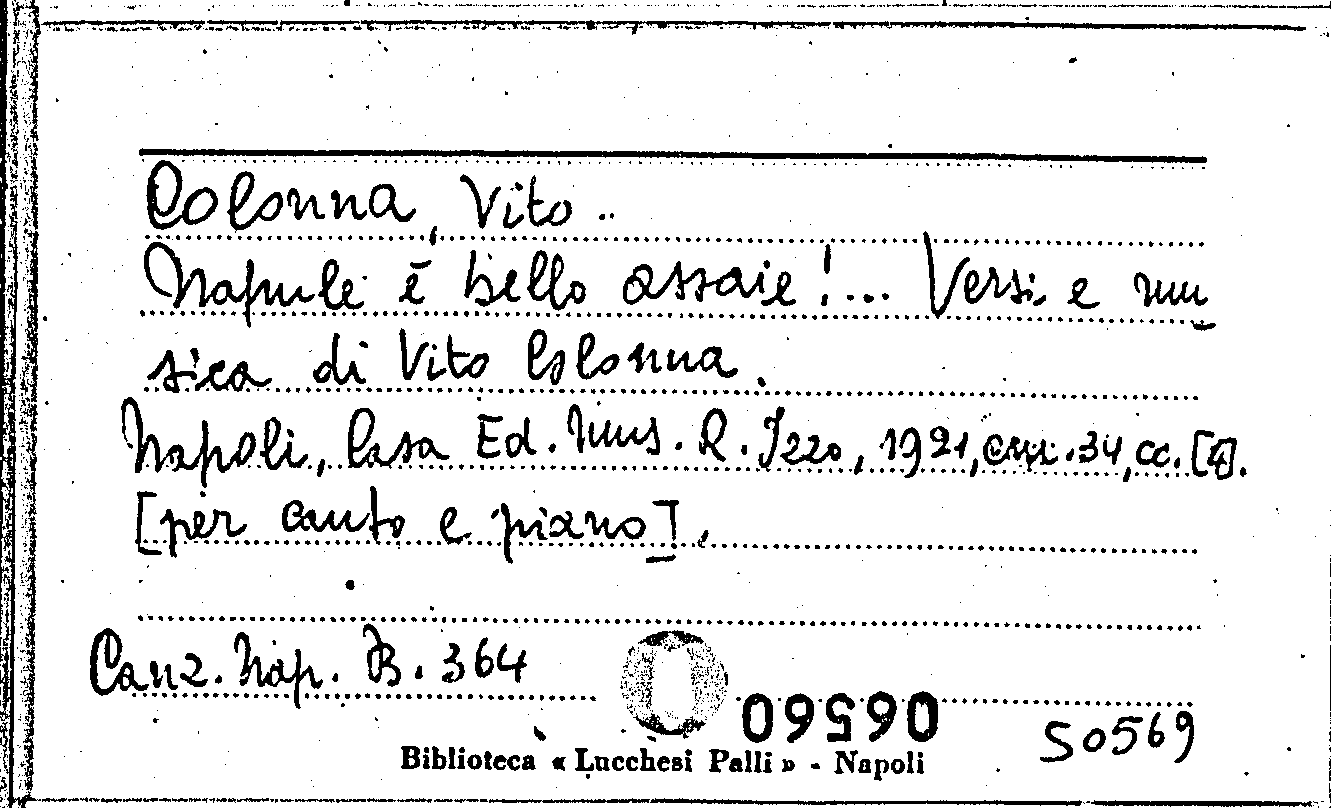 Colonna, Vito..
Napule è bello assaie!... Versi e mu
sica di Vito Colonna.
Napoli, Casa Ed. Mus. R. Izzo, 1921, cm. 34, cc. [4].
[per canto e piano].
Canz. Nap. B. 364
06560
50569
Biblioteca « Lucchesi Palli » - Napoli